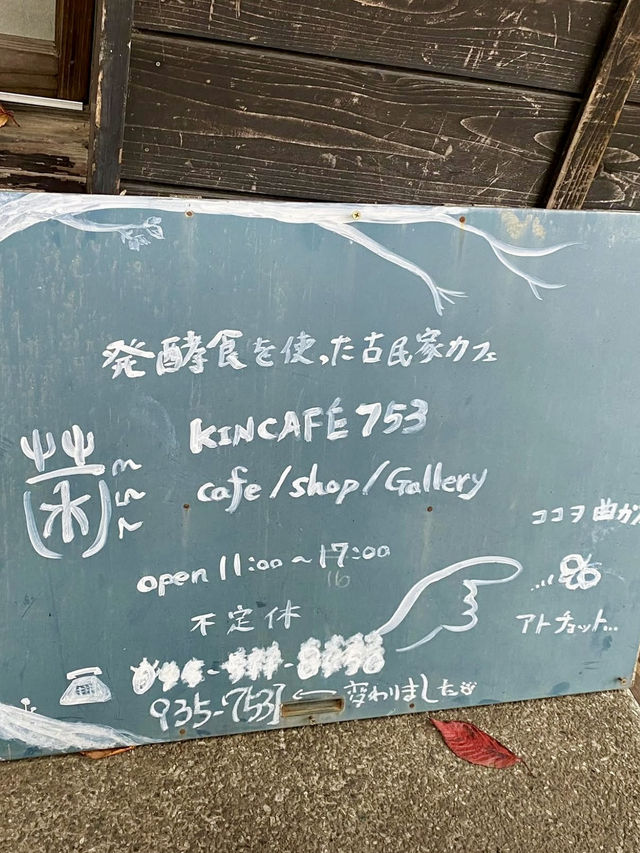 発酵食を使った古民家カフェ
KINCAFÉ 753
菌
753
cafe/shop/Gallery
ココヲ曲ガ
open 11:00~17:00
16
アトチョット...
不定休
935-7531 ← 変わりました